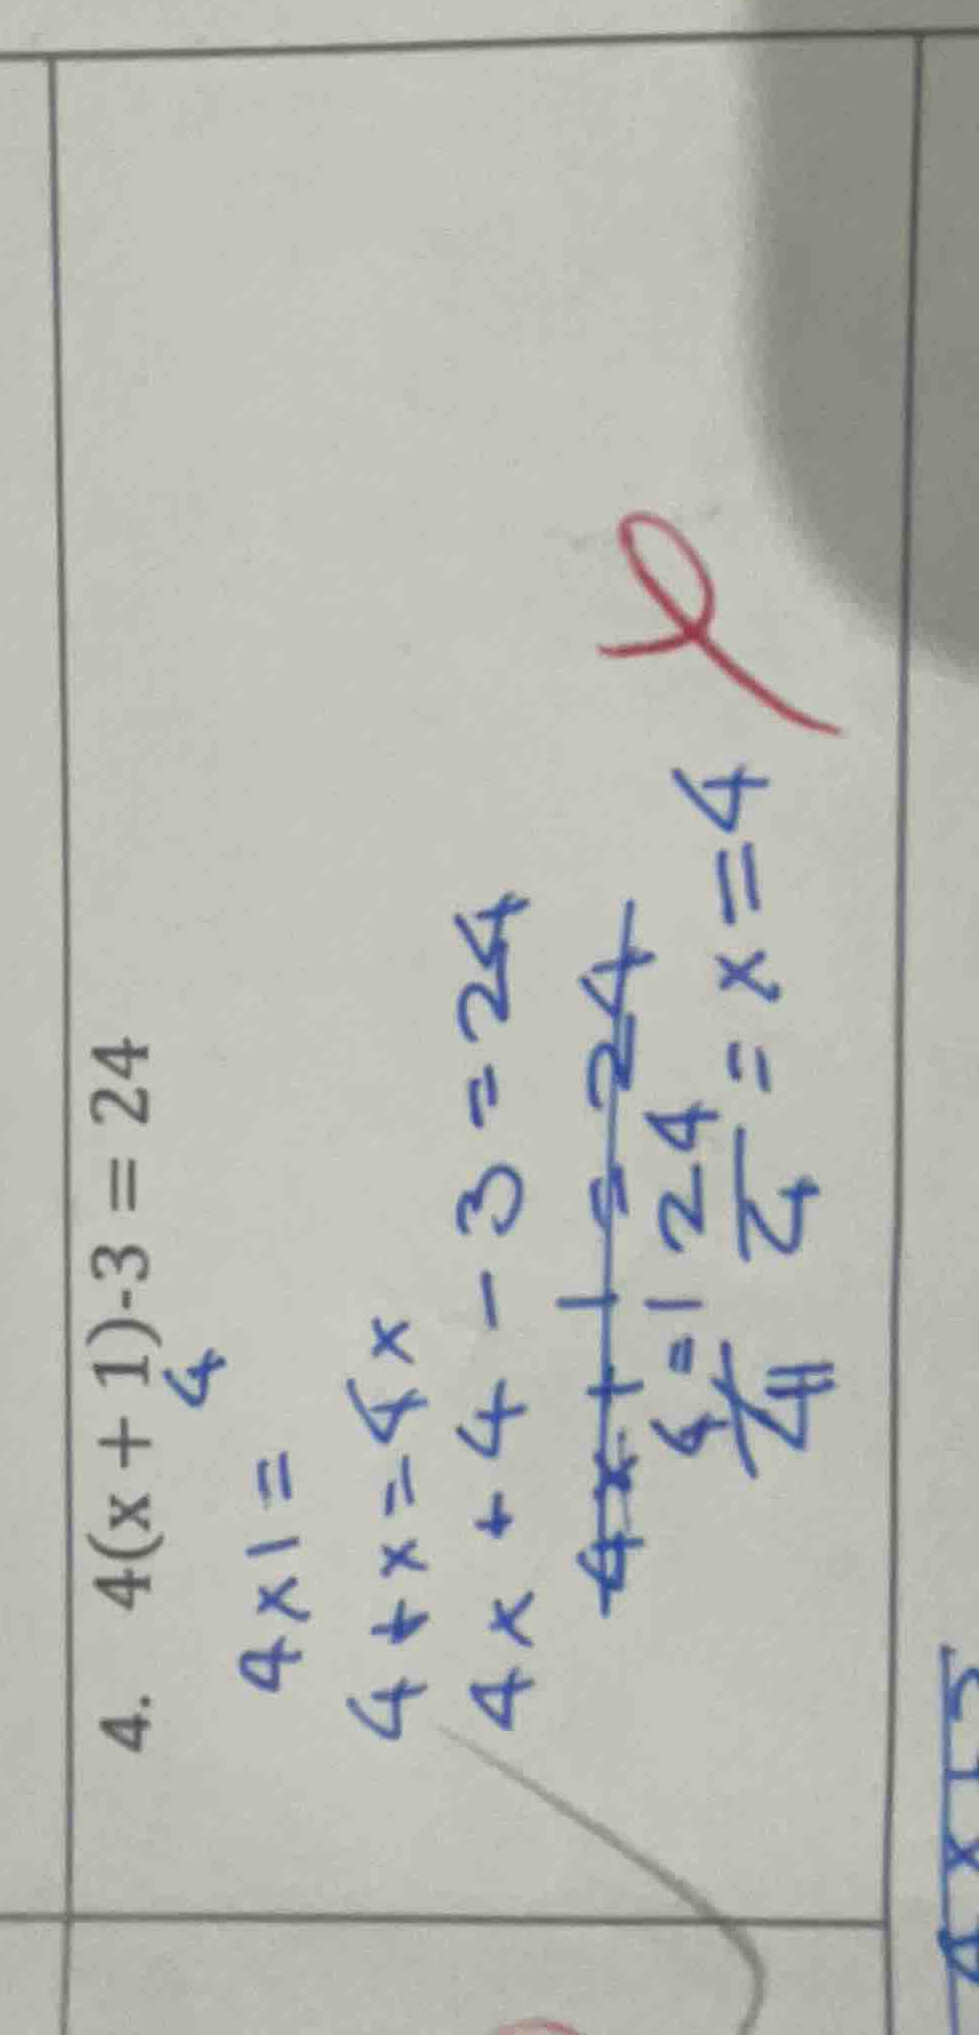 4. 4(x + 1)-3 = 24
4
4 x 1 =
4 + x = 4x
4x + 4 - 3 = 24
4x + 1 = 24
24
4 = x = 4